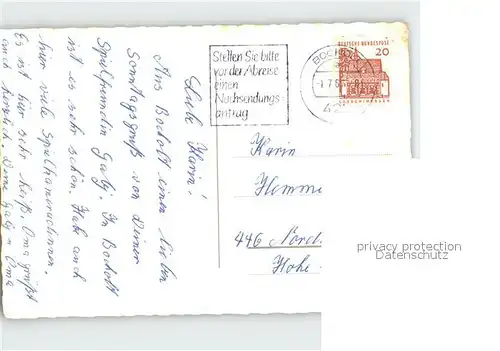 Stellen Sie bitte
vor der Abreise
einen
Nachsendungs-
antrag
BOCH
DEUTSCHE BUNDESPOST
20
Liebe Karin!
Aus Bocholt einen lieben
Sonntagsgruß von Deiner
Spielfreundin Gaby. In Bocholt
ist es sehr schön. Habe auch
hier viele Spielkameradinnen.
Es ist hier sehr heiß. Oma grüßt
auch herzlich. Deine Gaby u Oma
Karin
Hemme
446 Nord
Hohe
privacy protection
Datenschutz